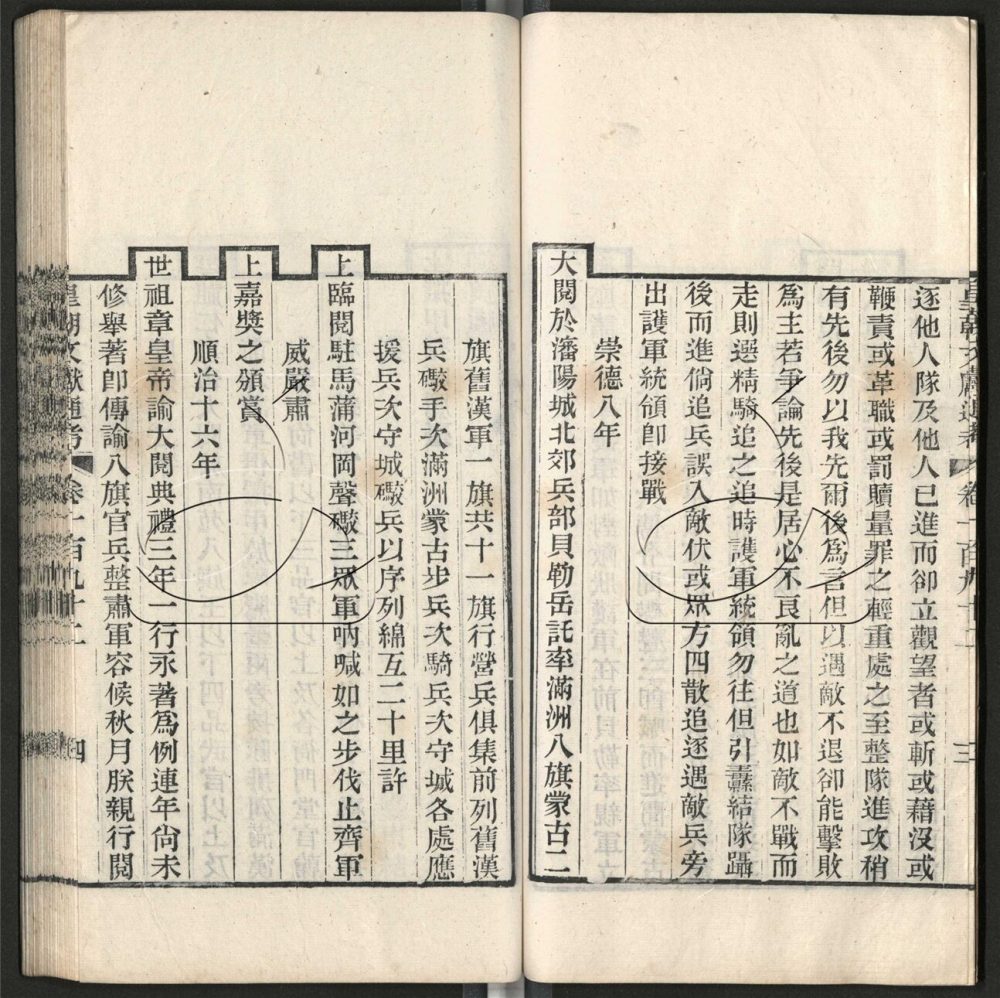 皇朝文獻通考 卷一百九十二 三
逐他人隊及他人已進而卻立觀望者或斬或藉沒或
鞭責或革職或罰贖量罪之輕重處之至整隊進攻稍
有先後勿以我先爾後爲言但以遇敵不退卻能擊敗
爲主若爭論先後是居心不良亂之道也如敵不戰而
走則選精騎追之追時護軍統領勿往但引纛結隊躡
後而進倘追兵誤入敵伏或眾方四散追逐遇敵兵旁
出護軍統領卽接戰
崇德八年
大閱於瀋陽城北郊兵部貝勒岳託率滿洲八旗蒙古二
旗舊漢軍一旗共十一旗行營兵俱集前列舊漢
兵礮手次滿洲蒙古步兵次騎兵次守城各處應
援兵次守城礮兵以序列綿互二十里許
上臨閱駐馬蒲河岡聲礮三眾軍吶喊如之步伐止齊軍
威嚴肅
上嘉獎之頒賞
順治十六年
世祖章皇帝諭大閱典禮三年一行永著爲例連年尙未
修舉著卽傳諭八旗官兵整肅軍容候秋月朕親行閱
皇朝文獻通考 卷一百九十二 四